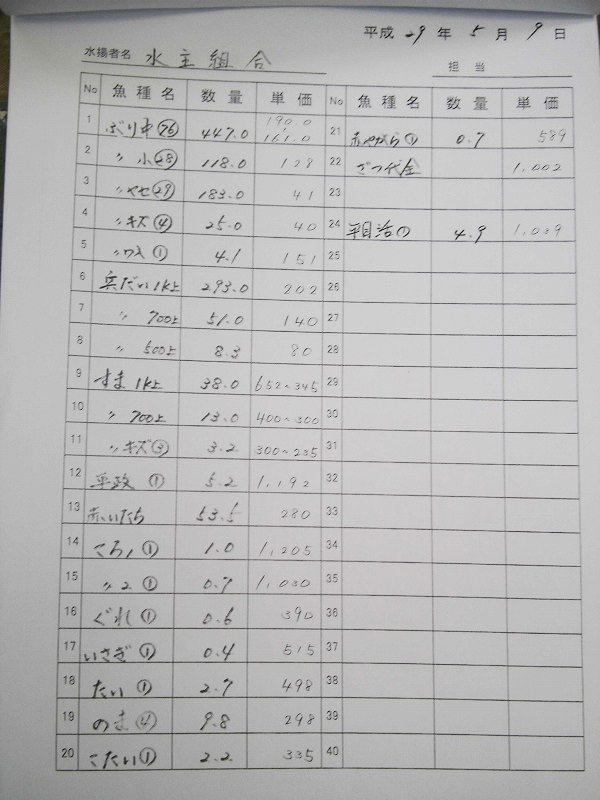 平成 29 年 5 月 9 日
水揚者名 水主組合
担当
No 魚種名 数量 単価 No 魚種名 数量 単価
1 ぶり中(76) 447.0 190.0 161.0 21 赤やがら① 0.7 589
2 〃 小(28) 118.0 128 22 ざつ代金 1,002
3 〃ヤセ(29) 183.0 41 23
4 〃キズ④ 25.0 40 24 平目活の 4.9 1,039
5 ① 4.1 151 25
6 兵だい1k上 293.0 202 26
7 〃 700上 51.0 140 27
8 〃 500上 8.3 80 28
9 すま 1k上 38.0 652〜345 29
10 〃 700上 13.0 400〜300 30
11 〃キズ③ 3.2 300〜235 31
12 平政 ① 5.2 1,192 32
13 赤いたち 53.5 280 33
14 ころ1① 1.0 1,205 34
15 〃2① 0.7 1,030 35
16 ぐれ① 0.6 390 36
17 いさぎ① 0.4 515 37
18 たい① 2.7 498 38
19 のま④ 9.8 298 39
20 こたい① 2.2 335 40